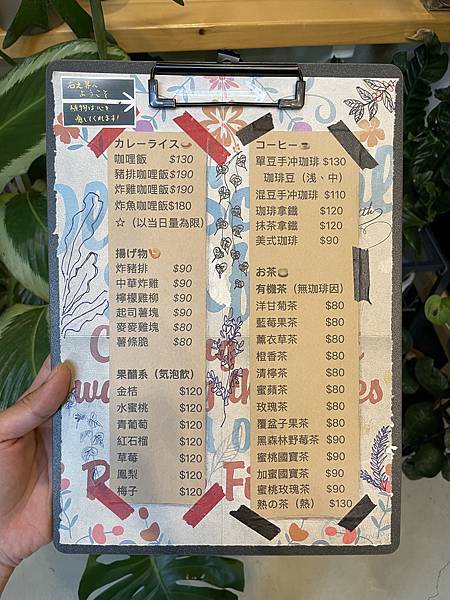 石之芽へ
ようこそ
植物は心を
癒してくれます!
カレーライス
咖哩飯 $130
豬排咖哩飯$190
炸雞咖哩飯$190
炸魚咖哩飯$180
☆（以當日量為限）
揚げ物
炸豬排 $90
中華炸雞 $90
檸檬雞柳 $90
起司薯塊 $90
麥麥雞塊 $80
薯條脆 $80
果醋系（気泡飲）
金桔 $120
水蜜桃 $120
青葡萄 $120
紅石榴 $120
草莓 $120
鳳梨 $120
梅子 $120
コーヒー
單豆手冲珈琲 $130
珈琲豆（浅、中）
混豆手冲珈琲 $110
珈琲拿鐵 $120
抹茶拿鐵 $120
美式珈琲 $90
お茶
有機茶（無珈琲因）
洋甘菊茶 $80
藍莓果茶 $80
薰衣草茶 $80
橙香茶 $80
清檸茶 $80
蜜蘋茶 $80
玫瑰茶 $80
覆盆子果茶 $80
黑森林野莓茶 $90
蜜桃國寶茶 $90
加蜜國寶茶 $90
蜜桃玫瑰茶 $90
熟の茶（熱） $130